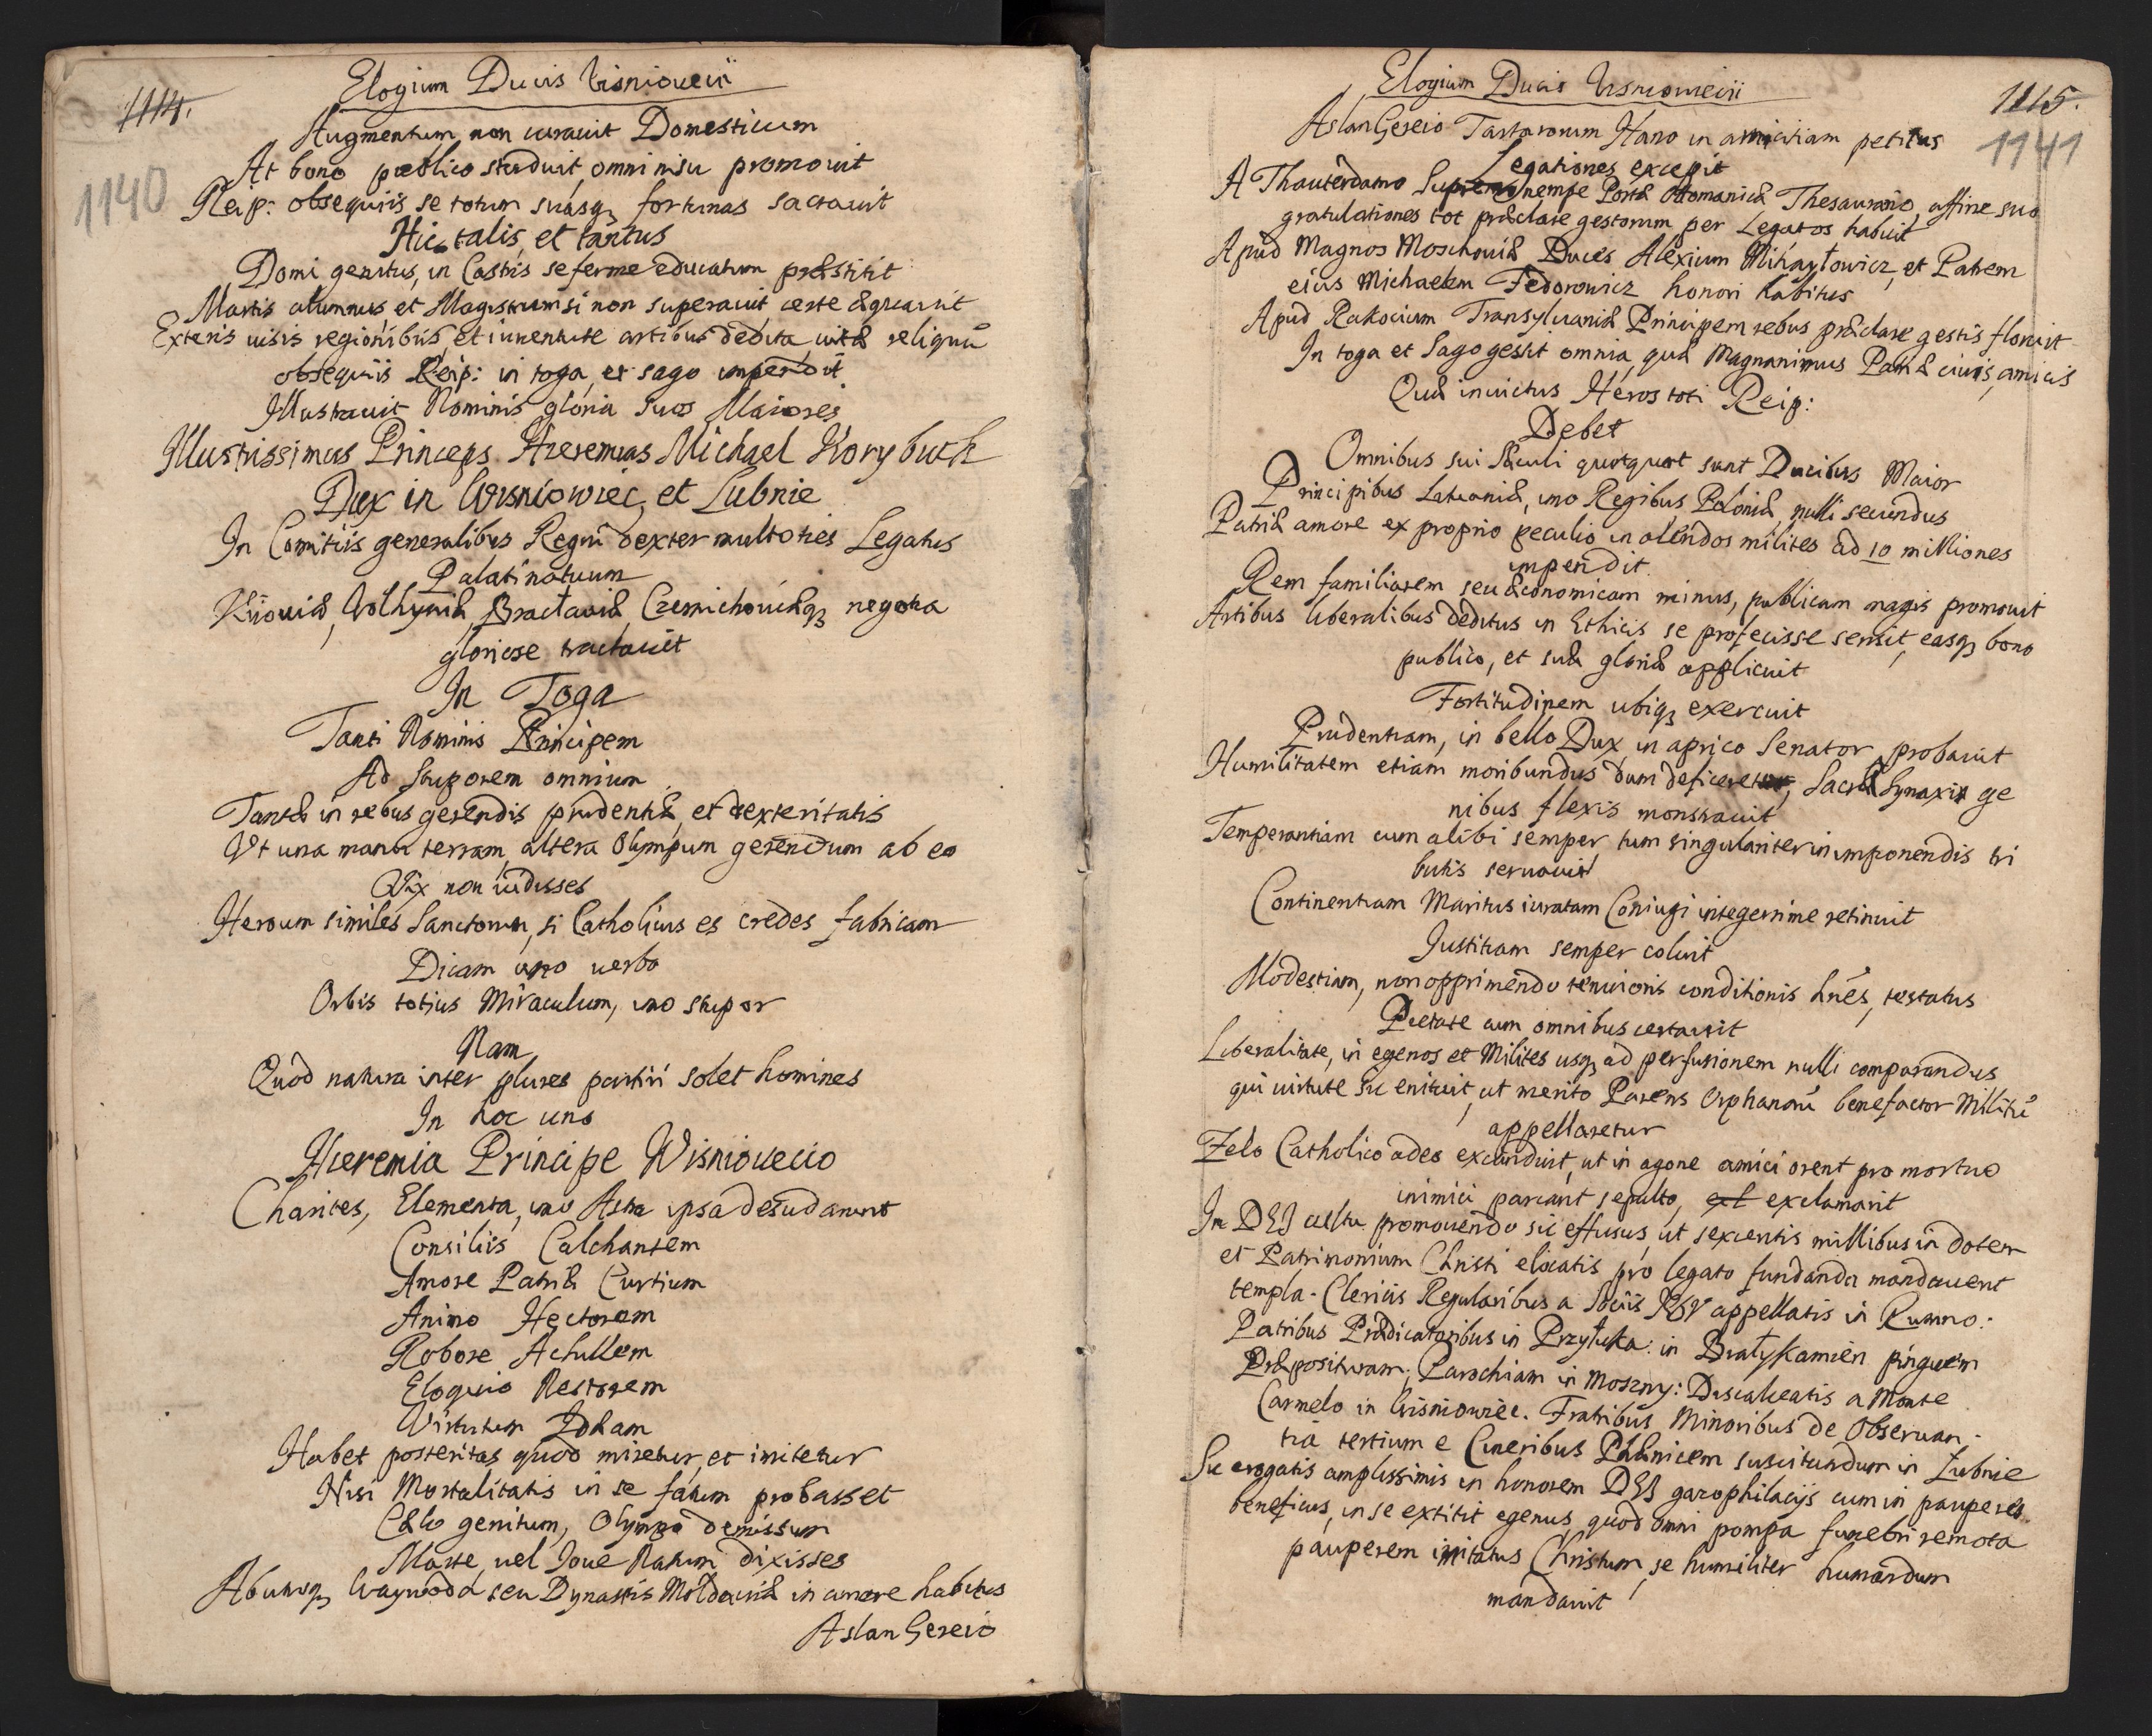 1114.
1140
Elogium Ducis Visniovecii
Augmentum non curauit Domesticum
At bono publico studuit, omni nisu promouit
Reip: obsequiis se totum suasq; fortunas sacrauit
Hic talis et tantus
Domi genitus, in Castris se ferme educatum præstitit
Martis alumnus et Magistrum si non superauit certe æquauit
Exteris uisis regionibus, et iuuentute artibus dedita, uitæ reliquũ
obsequiis Reip: in toga, et sago impendit
Illustrauit Nominis gloria suos Maiores
Illustrissimus Princeps Hieremias Michael Korybuth
Dux in Wisniowiec et Lubnie
In Comitiis generalibus Regni dexter multoties Legatus
Palatinatuum
Kijouiæ, Wolhyniæ, Braclauiæ, Czernichouiæq; negotia
gloriose tractauit
In Toga
Tanti Nominis Principem
Ad stuporem omnium
Tantæ in rebus gerendis prudentiæ, et dexteritatis
Vt una manu terram, altera Olympum gerendum ab eo
Vix non uidisses
Heroum similes Sanctorum, si Catholicus es credes fabricam
Dicam uno uerbo
Orbis totius Miraculum, imo stupor
Nam
Quod natura inter plures partiri solet homines
In hoc uno
Hieremia Principe Wisniouecio
Charites, Elementa, imo Astra ipsa desudarunt
Consiliis Calchantem
Amore Patriæ Curtium
Animo Hectorem
Robore Achillem
Eloquio Nestorem
Virtutum Ideam
Habet posteritas quod miretur, et imitetur
Nisi Mortalitatis in se fatum probasset
Cælo genitum, Olympo demissum
Marte, uel Ioue Natum dixisses
Abutroq; Waywoda seu Dynastis Moldauiæ in amore habitus
Aslan Gereio
Elogium Ducis Visniouiecii
1115.
1141
Aslan Gereio Tartarorum Hano in amicitiam petitus
Legationes excepit
A Thauterdamo nempe Portæ Ottomanicæ Thesaurario, affine suo
gratulationes tot præclare gestorum per Legatos habuit
Apud Magnos Moschouiæ Duces Alexium Mihayłowicz, et Patrem
eius Michaelem Fedorowicz honori habitus
Apud Rakocium Transyluaniæ Principem rebus præclare gestis floruit
In toga et Sago gessit omnia, quæ Magnanimus Patriæ ciuis, amicis
Quæ inuictus Heros toti Reip:
Debet
Omnibus sui sæculi quotquot sunt Ducibus Maior
Principibus Lituaniæ, imo Regibus Poloniæ nulli secundus
Patriæ amore ex proprio peculio in alendos milites ad 10 milliones
impendit
Rem familiarem seu æconomicam minus, publicam magis promouit
Artibus liberalibus deditus in Ethicis se profecisse sensit, easq; bono
publico, et suæ gloriæ applicuit
Fortitudinem ubiq; exercuit
Prudentiam, in bello Dux in aprico Senator probauit
Humilitatem etiam moribundus dum deficeret, Sacræ Synaxi ge
nibus flexis monstrauit
Temperantiam cum alibi semper tum singulariter in imponendis tri
butis seruauit
Continentiam Maritus iuratam Coniugi integerrime retinuit
Iustitiam semper coluit
Modestiam, non opprimendo tenuioris conditionis hñes, testatus
Pietate cum omnibus certauit
Liberalitate, in egenos et Milites usq; ad perfusionem nulli comparandus
qui uirtute sic enituit, ut merito Parens Orphanorũ benefactor Militũ
appellaretur
Zelo Catholico adeo excanduit, ut in agone amici orent pro mortuo
inimici parcant sepulto, exclamarit
In DEI cultu promouendo sic effusus, ut sexcentis millibus in dotem
et Patrimonium Christi elocatis pro legato fundanda mandauerit
templa. Clericis Regularibus a Sociis IESV appellatis in Rumno:
Patribus Prædicatoribus in Przyłuka: in Białykamień pinguem
Præposituram, Parochiam in Moszny: Discalceatis a Monte
Carmelo in Wisniowiec. Fratribus Minoribus de Obseruan-
tia tertium e Cineribus Phænicem suscitandum in Lubnie
Sic erogatis amplissimis in honorem DEI gazophilacijs cum in pauperes
beneficus, in se extitit egenus, quod omni pompa funebri remota
pauperem imitatus Christum, se humiliter humandum
mandauit